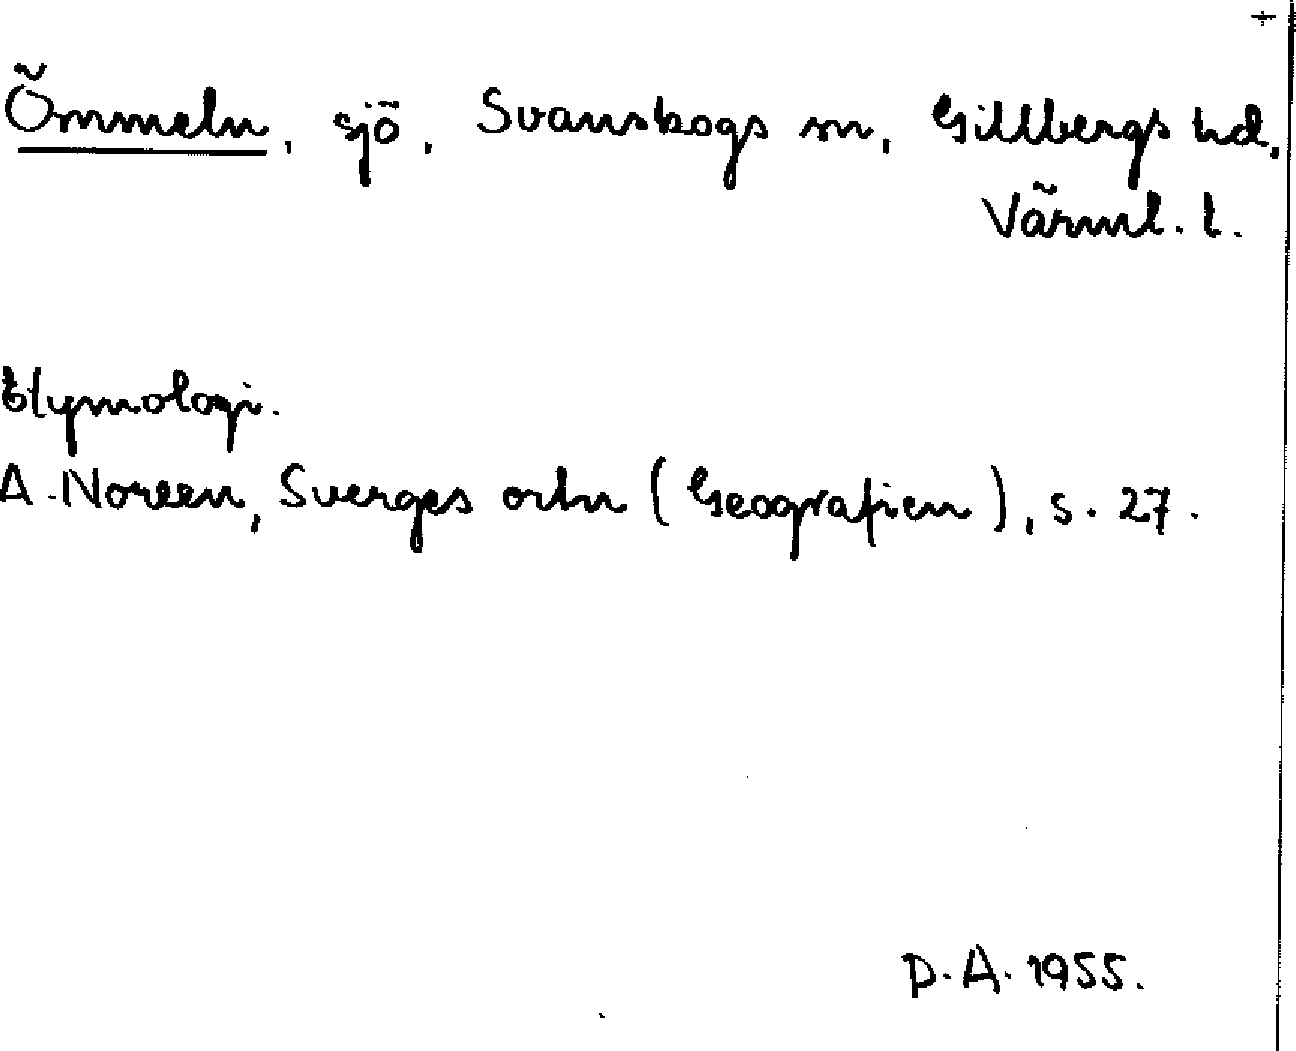 +
Ömmeln, sjö, Svanskogs sn, Gillbergs hd,
Värml. l.
Etymologi.
A. Noreen, Sverges ortn (Geografien), s. 27.
D.A. 1955.